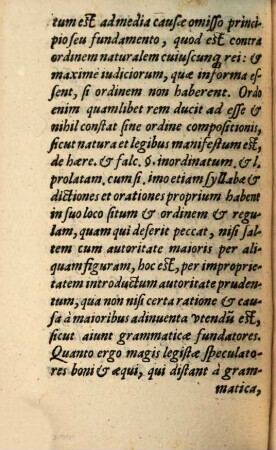 tum est ad media causæ omisso princi-
pio seu fundamento, quod est contra
ordinem naturalem cuiuscunq; rei: &
maxime iudiciorum, quæ informa es-
sent, si ordinem non haberent. Ordo
enim quamlibet rem ducit ad esse &
nihil constat sine ordine compositionis,
sicut natura et legibus manifestum est,
de hære. & falc. §. inordinatum. & l.
prolatam. cum si. imo etiam syllabæ &
dictiones et orationes proprium habent
in suo loco situm & ordinem & regu
lam, quam qui deserit peccat, nisi sal-
tem cum autoritate maioris per ali-
quam figuram, hoc est, per improprie-
tatem introductum autoritate pruden-
tum, qua non nisi certa ratione & cau
sa à maioribus adinuenta vtendũ est,
sicut aiunt grammaticæ fundatores.
Quanto ergo magis legistæ speculato-
res boni & æqui, qui distant à gram-
matica,